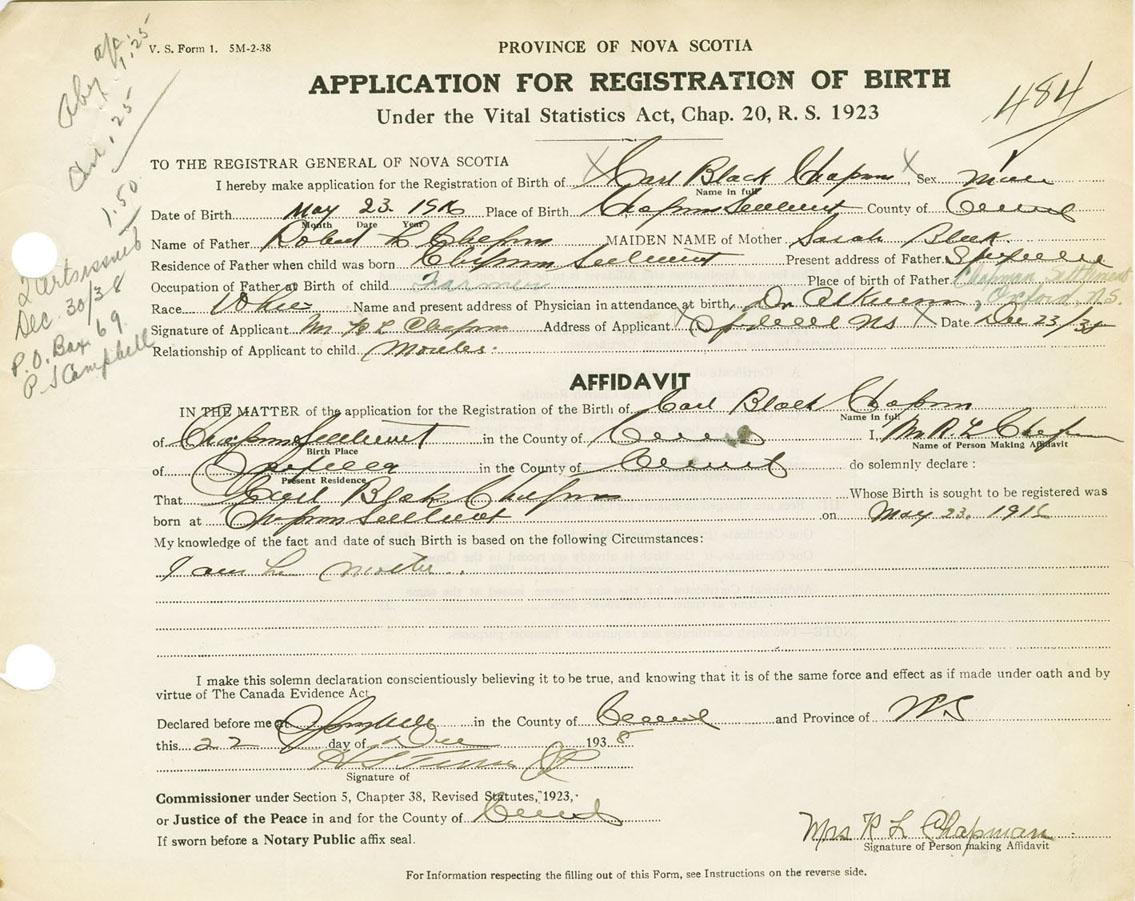 V. S. Form 1. 5M-2-38
PROVINCE OF NOVA SCOTIA
APPLICATION FOR REGISTRATION OF BIRTH
484
Under the Vital Statistics Act, Chap. 20, R. S. 1923
1.25
1.25
1.50
2 Certs issued
Dec. 30/38
P.O. Box 69
P. S Campbell
TO THE REGISTRAR GENERAL OF NOVA SCOTIA
I hereby make application for the Registration of Birth of X Carl Black Chapman X, Sex Male
Name in full
Date of Birth May 23 1916 Place of Birth Chapman Settlement County of Cumb
Month Date Year
Name of Father Robert L Chapman MAIDEN NAME of Mother Sarah Black
Residence of Father when child was born Chapman Settlement Present address of Father
Occupation of Father at Birth of child Farmer Place of birth of Father Chapman Settlement
Race White Name and present address of Physician in attendance at birth Dr. Atkinson, Oxford, N.S.
Signature of Applicant Mrs R L Chapman Address of Applicant X NS X Date Dec 23/38
Relationship of Applicant to child Mother.
AFFIDAVIT
IN THE MATTER of the application for the Registration of the Birth of Carl Black Chapman
Name in full
of Chapman Settlement in the County of Cumb I, Mrs R L Chapman
Birth Place Name of Person Making Affidavit
of in the County of Cumb do solemnly declare :
Present Residence
That Carl Black Chapman Whose Birth is sought to be registered was
born at Chapman Settlement on May 23. 1916
My knowledge of the fact and date of such Birth is based on the following Circumstances:
I am his mother.
I make this solemn declaration conscientiously believing it to be true, and knowing that it is of the same force and effect as if made under oath and by
virtue of The Canada Evidence Act
Declared before me at in the County of Cumb and Province of NS
this 22 day of Dec 1938
Signature of
Commissioner under Section 5, Chapter 38, Revised Statutes, 1923,
or Justice of the Peace in and for the County of Cumb
Mrs R L Chapman
If sworn before a Notary Public affix seal.
Signature of Person making Affidavit
For Information respecting the filling out of this Form, see Instructions on the reverse side.